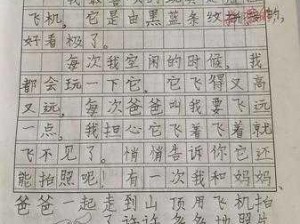 我最喜
飞机。它是由黑蓝条纹拼的,
好看极了。
每次我空闲的时候,我
都会玩一下它。它飞得又高
又玩,每次爸爸叫我要飞远
一点,我担心它飞着飞着就
飞不见了。悄悄告诉你它还
能拍照呢!有一次我和妈妈、
爸爸一起走到山顶用飞机拍